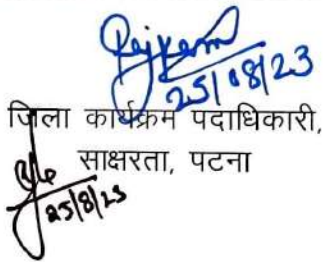 25/08/23
जिला कार्यक्रम पदाधिकारी,
साक्षरता, पटना
25/8/23